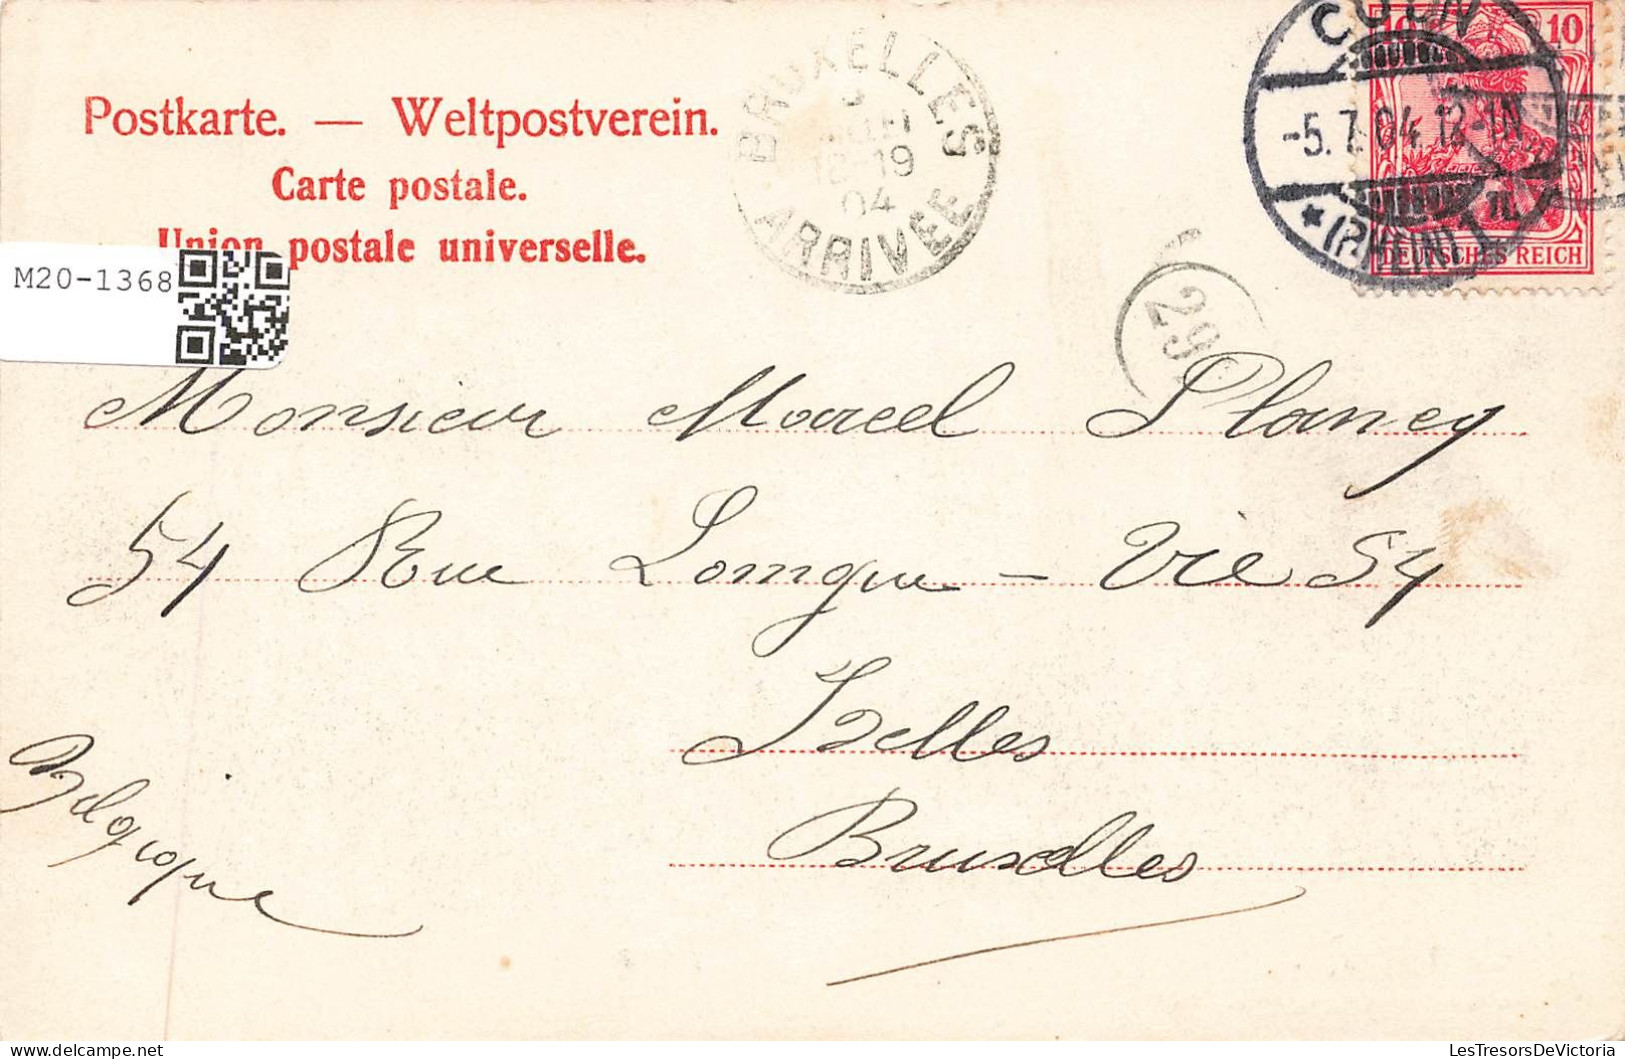 Postkarte. — Weltpostverein.
Carte postale.
Union postale universelle.
M20-1368
BRUXELLES
18-19
04
ARRIVEE
29
CÖLN
-5.7.04.12-1N
* (RHEIN) 1
10 10
DEUTSCHES REICH
Monsieur Marcel Plancy
54 Rue Longue - Vie 54
Ixelles
Bruxelles
Belgique
LesTresorsDeVictoria